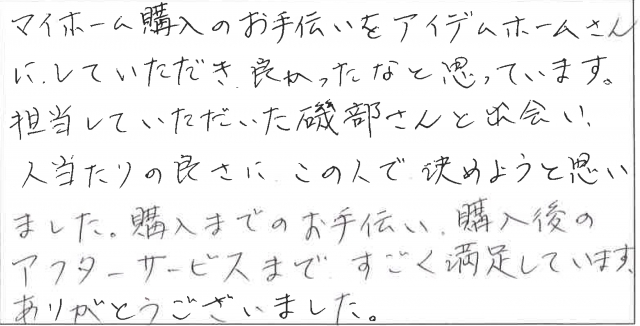 マイホーム購入のお手伝いをアイデムホームさん
に、していただき、良かったなと思っています。
担当していただいた磯部さんと出会い、
人当たりの良さに、この人で決めようと思い
ました。購入までのお手伝い、購入後の
アフターサービスまで、すごく満足しています。
ありがとうございました。